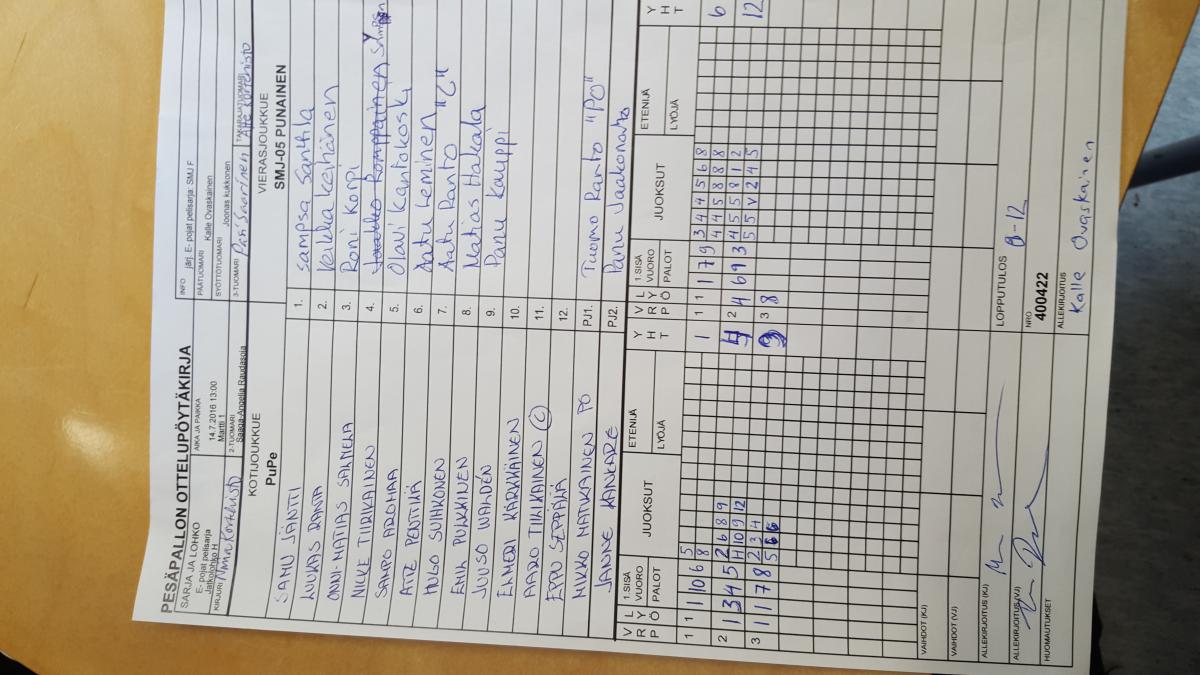 PESÄPALLON OTTELUPÖYTÄKIRJA
SARJA JA LOHKO
E- pojat pelisarja
Jatkolohko H
AIKA JA PAIKKA
14.7.2016 13:00
Martti 1
INFO järj. E- pojat pelisarja: SMJ F
PÄÄTUOMARI Kalle Ovaskainen
SYÖTTÖTUOMARI Joonas kukkonen
KIRJURI
2-TUOMARI
Saaga-Angelia Raudasoja
3-TUOMARI Pasi Saarinen
TAKARAJATUOMARI
KOTIJOUKKUE
PuPe
VIERASJOUKKUE
SMJ-05 PUNAINEN
SAMU JÄNTTI 1. Sampsa Santtila
LUUKAS RANTA 2. Veikka Keihänen
ONNI-MATIAS SAHLMAN 3. Roni Korpi
NIILE TIRIKAINEN 4.
SAMPO AROMAA 5. Olavi Kantokoski
ATTE PENTIKÄ 6. Aatu Leminen "C"
HUGO SUIHKONEN 7. Aatu Ranto
EMIL PULKKINEN 8. Matias Haakala
JUUSO WALDÉN 9. Panu Kauppi
ELMERI KÄRKKÄINEN 10.
AARO TIIHIKAINEN (C) 11.
EPPU SEPPÄLÄ 12.
MIKKO MATIKAINEN PO PJ1. Tuomo Ranto "PO"
JANNE KANKARE PJ2. Panu Jaakonaho
VRP LYÖ 1.SISÄ VUORO PALOT JUOKSUT ETENIJÄ LYÖJÄ YHT VRP LYÖ 1.SISÄ VUORO PALOT JUOKSUT ETENIJÄ LYÖJÄ YHT
1 1 1 10 6 5 8 1 1 1 1 7 9 3 4 4 5 6 8 4 4 5 8 8 8 6
2 1 3 4 5 2 6 8 9 11 10 9 12 2 4 6 9 3 4 5 5 8 1 2 5 5 V 2 4 5 12
3 1 1 7 8 2 3 4 5 6 6 9 3 8
VAIHDOT (KJ)
VAIHDOT (VJ)
ALLEKIRJOITUS (KJ)
LOPPUTULOS 9-12
ALLEKIRJOITUS (VJ)
NRO
400422
HUOMAUTUKSET
ALLEKIRJOITUS
Kalle Ovaskainen